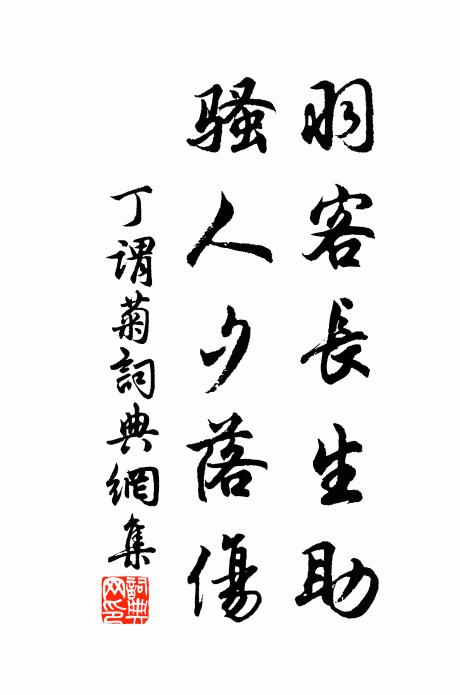 羽客長生助
騷人夕落傷
丁謂菊詞典網集
詞典網印